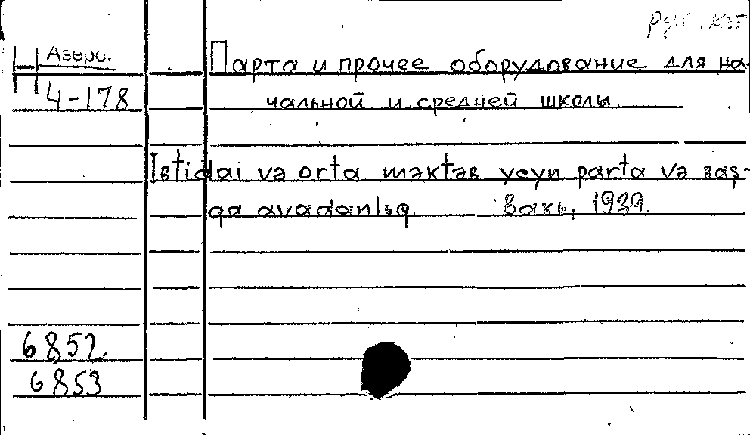 Азерб.
Парта и прочее оборудование для на-
4-178
чальной и средней школы.
Ibtidai və orta məktəb ycyn parta və baş-
qa avadanlьq. Bakь, 1939.
6852
6853